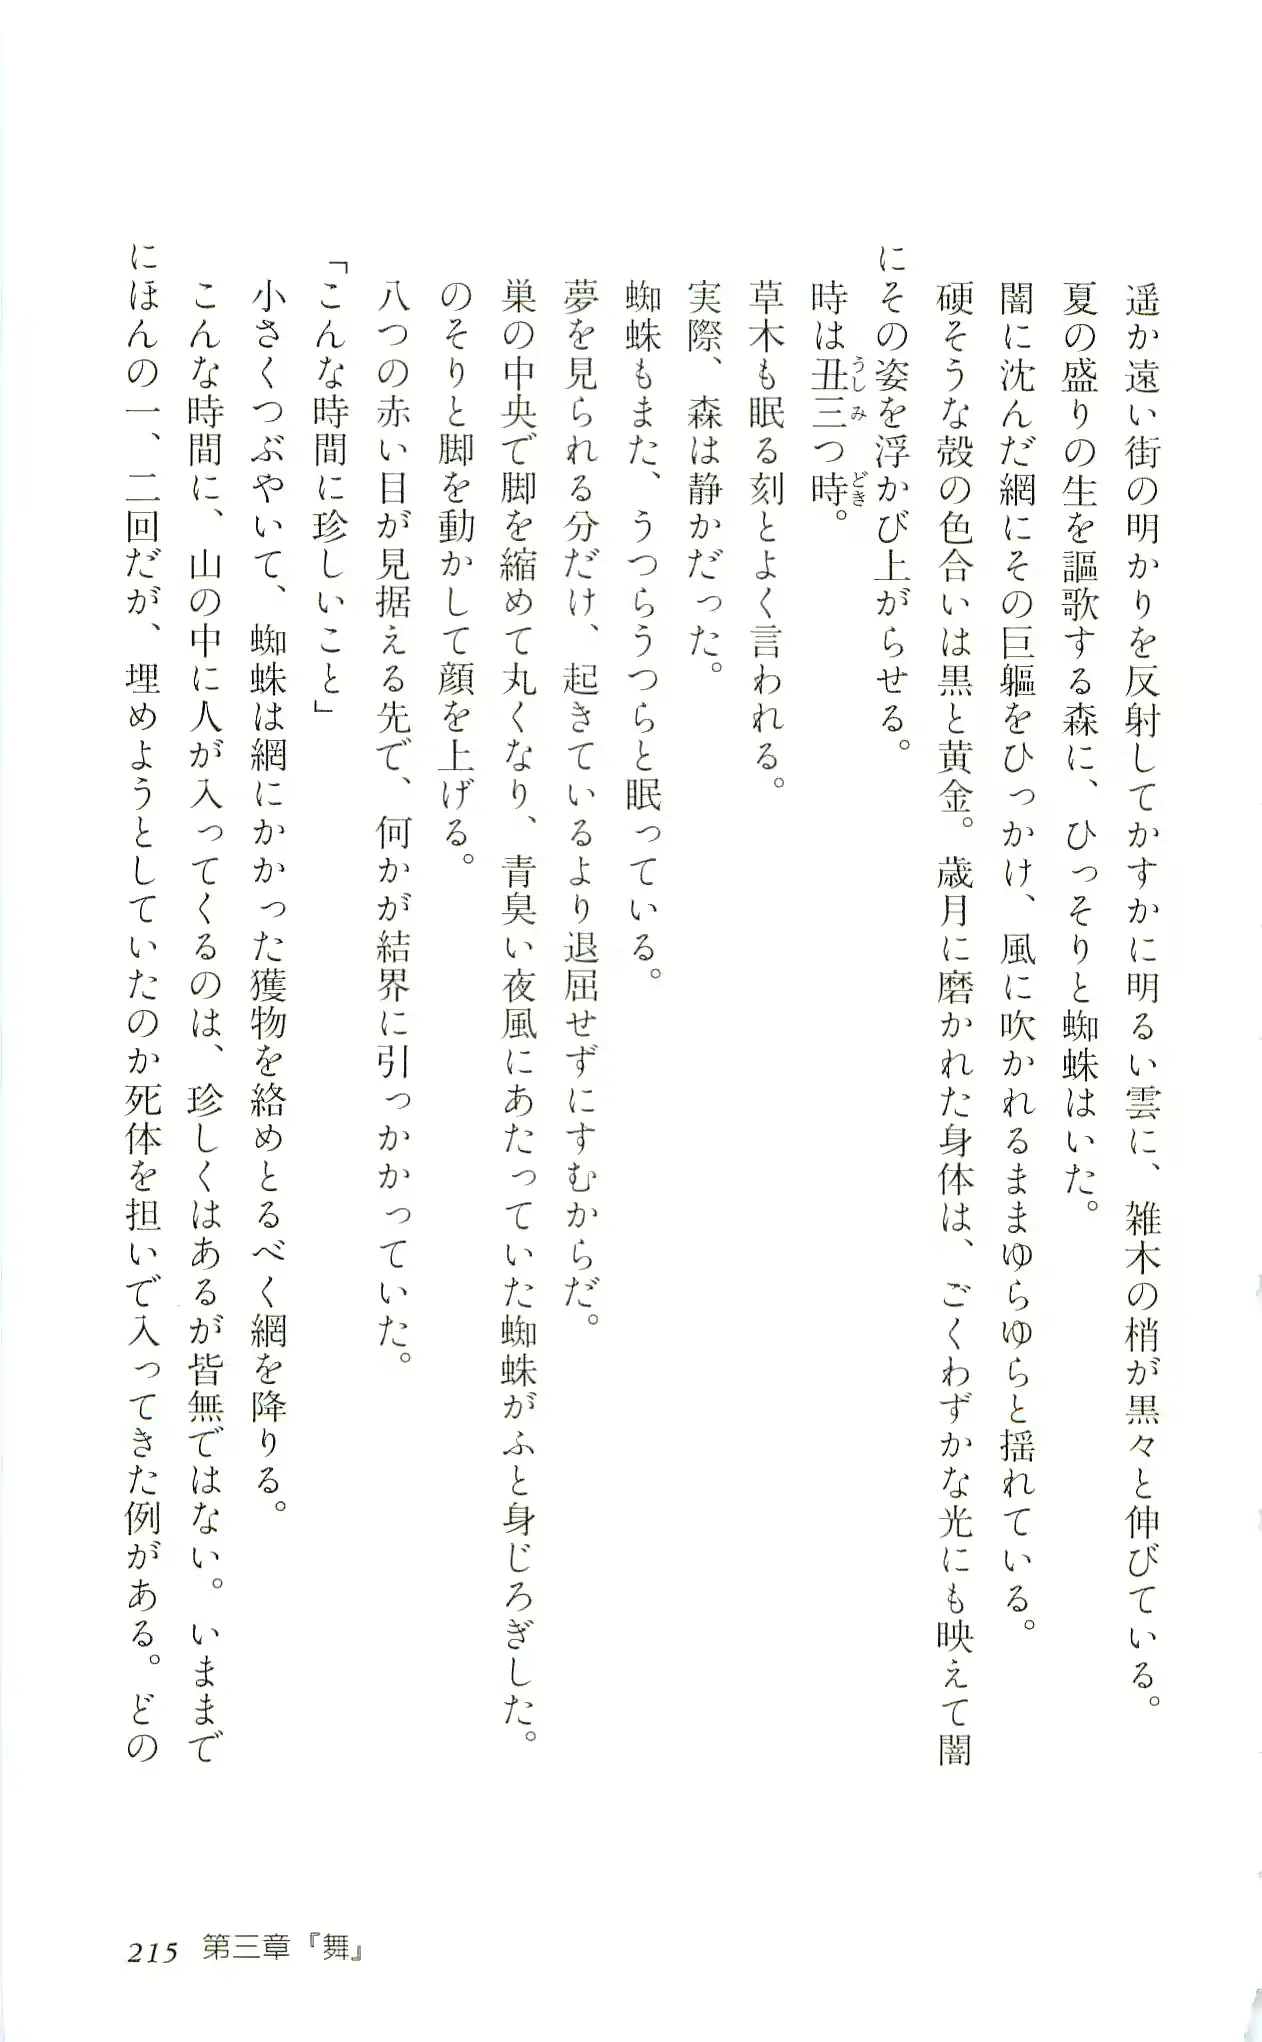 遥か遠い街の明かりを反射してかすかに明るい雲に、雑木の梢が黒々と伸びている。
夏の盛りの生を謳歌する森に、ひっそりと蜘蛛はいた。
闇に沈んだ網にその巨軀をひっかけ、風に吹かれるままゆらゆらと揺れている。
硬そうな殻の色合いは黒と黄金。歳月に磨かれた身体は、ごくわずかな光にも映えて闇
にその姿を浮かび上がらせる。
時は丑三つ時。
うしみ
どき
草木も眠る刻とよく言われる。
実際、森は静かだった。
蜘蛛もまた、うつらうつらと眠っている。
夢を見られる分だけ、起きているより退屈せずにすむからだ。
巣の中央で脚を縮めて丸くなり、青臭い夜風にあたっていた蜘蛛がふと身じろぎした。
のそりと脚を動かして顔を上げる。
八つの赤い目が見据える先で、何かが結界に引っかかっていた。
「こんな時間に珍しいこと」
小さくつぶやいて、蜘蛛は網にかかった獲物を絡めとるべく網を降りる。
こんな時間に、山の中に人が入ってくるのは、珍しくはあるが皆無ではない。いままで
にほんの一、二回だが、埋めようとしていたのか死体を担いで入ってきた例がある。どの
215 第三章『舞』